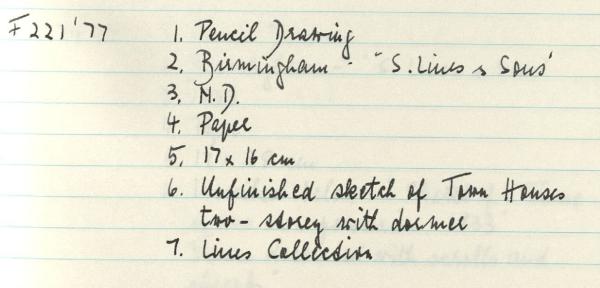 F221'77 1. Pencil Drawing
2. Birmingham - "S. Lines & Sons'
3. N.D.
4. Paper
5. 17 x 16 cm
6. Unfinished sketch of Town Houses
two-storey with dormer
7. Lines Collection